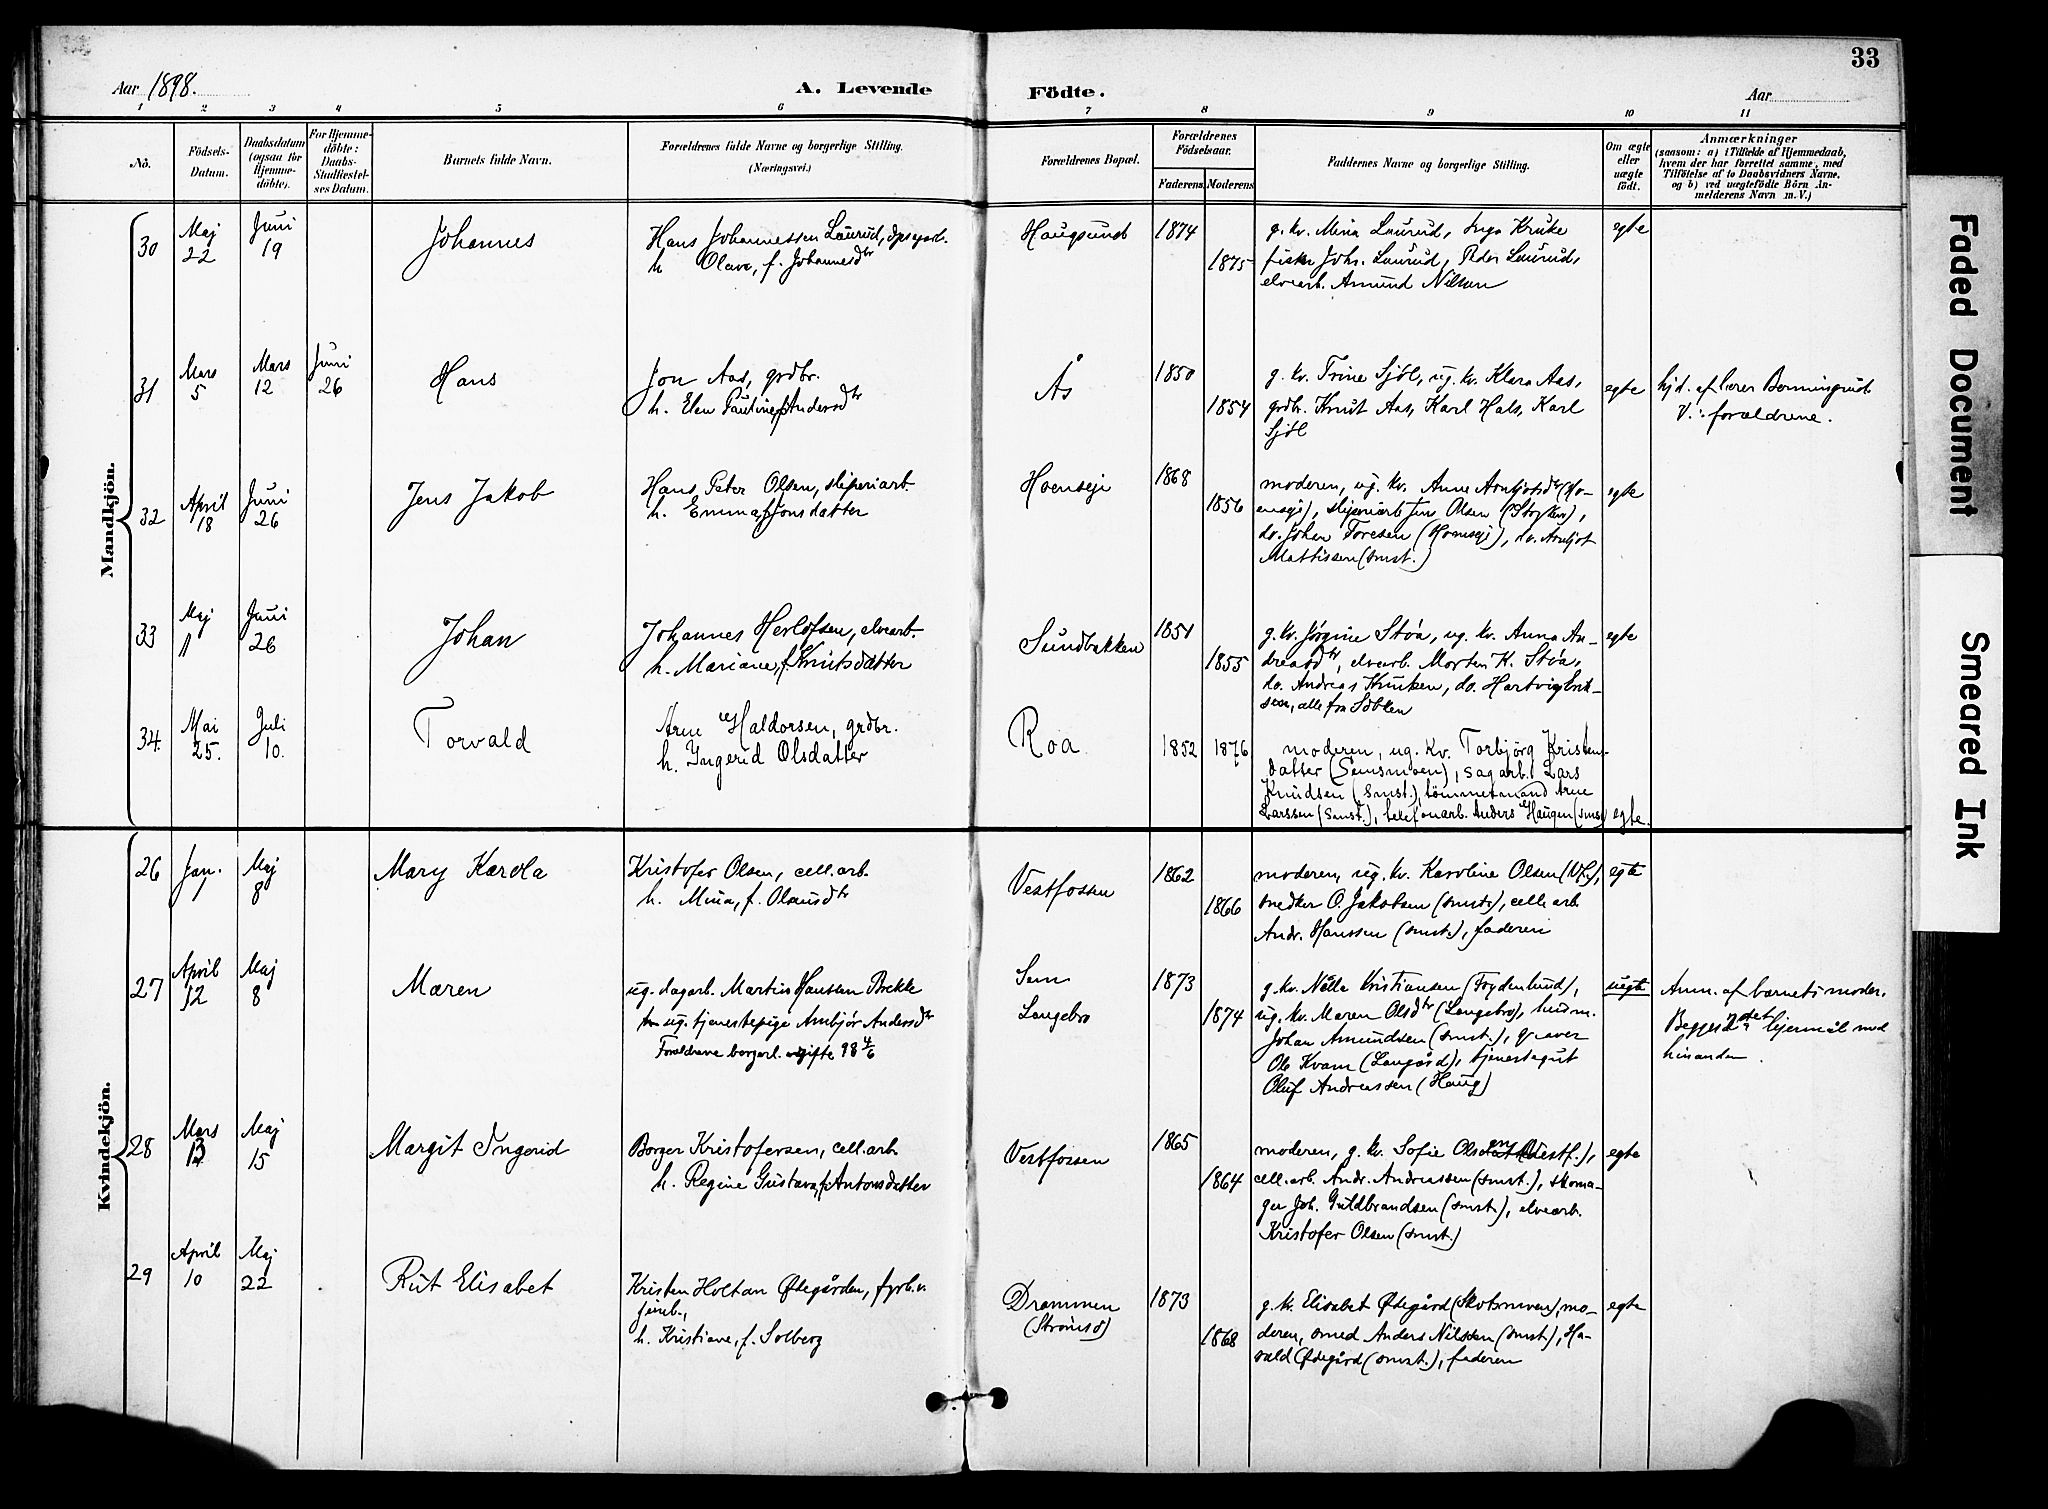 33
Aar 1898.
A. Levende Födte.
Aar
1 2 3 4 5 6 7 8 9 10 11
No.
Födsels-Datum.
Daabsdatum (ogsaa for Hjemme-döbte).
For Hjemme-döbte: Daabs-Stadfæstel-ses Datum.
Barnets fulde Navn.
Forældrenes fulde Navne og borgerlige Stilling.
(Næringsvei.)
Forældrenes Bopæl.
Forældrenes Födselsaar.
Faderens Moderens
Faddernes Navne og borgerlige Stilling.
Om ægte eller uægte födt.
Anmærkninger
(saasom: a) i Tilfælde af Hjemmedaab, hvem der har forrettet samme, med Tilföielse af to Daabsvidners Navne, og b) ved uægtefödte Börn Anmelderens Navn m. V.)
Mandkjön.
30 Maj 22 Juni 19 Johannes
Hans Johannessen Laurud,
h Olava, f. Johannesdtr
Haugsund 1874 1875
g. kv. Mina Laurud, Inga Kruke
Johs. Laurud, Peder Laurud,
elvearb. Amund Nilsen
egte
31 Mars 5 Mars 12 Juni 26 Hans
Jon Aas, grdbr.
h. Elen Pauline, f. Andersdtr
Ås 1850 1854
g. kv. Trine Sjöl, ug. kv. Klara Aas,
grdbr. Knut Aas, Karl Hals, Karl
Sjöl
egte
hjd. af lærer
V.: forældrene.
32 April 18 Juni 26 Jens Jakob
Hans Peter Olsen, sliperiarb.
h. Emma, f. Jonsdatter
Hoenseje 1868 1856
moderen, ug. kv. Anne Arnljotsdtr (Ho-
enseje), sliperiarb Jens Olsen
do. Johan Toresen (Hoenseje), do. Arnljot
Mattissen (smst.)
egte
33 Maj 11 Juni 26 Johan
Johannes Herlofsen, elvearb.
h. Mariane, f. Knutsdatter
Sundbakken 1851 1855
g. kv. Jørgine Støa, ug. kv. Anna An-
dreasdtr, elvearb. Morten K. Støa,
do. Andreas Kruken, do. Hartvig Erik-
sen, alle fra
egte
34. Mai 25. Juli 10. Torvald
Arne Haldorsen, grdbr.
h. Ingerid Olsdatter
Roa 1852 1876
moderen, ug. kv. Torbjörg Kristens-
datter (Semsmoen), sagarb. Lars
Knudsen (Smst.), tömmermand Arne
Larssen (Smst.), telefonarb. Anders Haugen (smst) egte.
Kvindekjön.
26 Jan. 1 Maj 8 Mary Karola
Kristofer Olsen, cell.arb.
h. Mina, f. Olausdtr
Vestfossen 1862 1866
moderen, ug. kv. Karoline Olsen (Vf.),
snedker O. Jakobsen (smst.), cell. arb.
Andr. Hanssen (smst.), faderen
egte
27 April 12 Maj 8 Maren
ug. dagarb. Martin Hanssen Brekke
ug. tjenestepige Anbjør Andersdtr
Forældrene borgerl. gifte 98 4/6
Sem
Langebro
1873 1874
g. kv. Nilla Kristiansen (Frydenlund),
ug. kv. Maren Olsdtr (Langebro), husm.
Johan Amundsen (smst.), graver
Ole Kvam (Langård), tjenestegut
Oluf Andreassen (Haug)
uegte
Anm. af barnets moder.
Begges 2det lejermål med
hinanden.
28 Mars 13 Maj 15 Margit Ingerid
Borger Kristofersen, cell.arb.
h. Regine Gustava, f. Antonsdatter
Vestfossen 1865 1864
moderen, g. kv. Sofie Olsen (Vestf.),
cell.arb. Andr. Andreassen (smst.), skoma-
ger Joh. Guldbrandsen (smst.), elvearb.
Kristofer Olsen (smst.)
egte
29 April 10 Maj 22 Rut Elisabet
Kristen Holtan Ødegården, fyrb. v.
jernb.,
h. Kristiane, f. Solberg
Drammen
(Strömsö)
1873 1868
g. kv. Elisabet Ødegård (Skotsmoen), mo-
deren, smed Anders Nilssen (smst), Ha-
rald Ødegård (smst.), faderen
egte
Faded Document
Smeared Ink